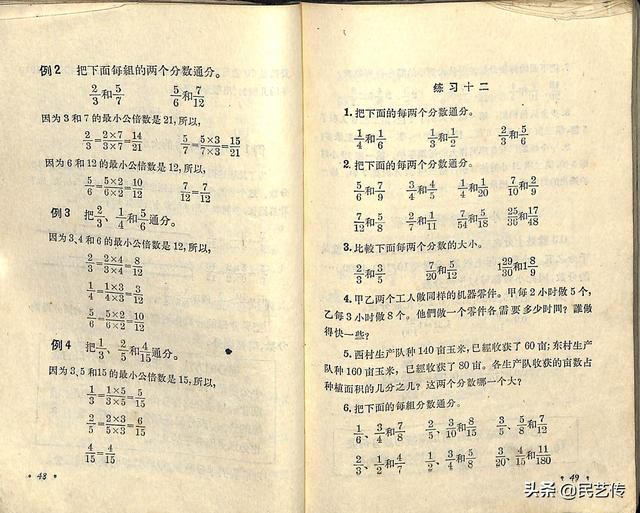 例2 把下面每組的两个分数通分。
2/3和5/7 5/6和7/12
因为3和7的最小公倍数是21,所以,
2/3=2×7/3×7=14/21 5/7=5×3/7×3=15/21
因为6和12的最小公倍数是12,所以,
5/6=5×2/6×2=10/12 7/12=7/12
例3 把2/3、1/4和5/6通分。
因为3、4和6的最小公倍数是12,所以,
2/3=2×4/3×4=8/12
1/4=1×3/4×3=3/12
5/6=5×2/6×2=10/12
例4 把1/3、2/5和4/15通分。
因为3、5和15的最小公倍数是15,所以,
1/3=1×5/3×5=5/15
2/5=2×3/5×3=6/15
4/15=4/15
• 48 •
练习十二
1.把下面的每两个分数通分。
1/4和1/6 1/3和1/2 2/3和5/6
2.把下面的每两个分数通分。
5/6和7/9 3/4和4/5 1/4和1/20 7/10和2/9
7/12和5/8 2/7和1/11 7/54和5/18 25/36和17/48
3.比較下面每两个分数的大小。
2/3和3/5 7/20和5/12 1 29/30和1 8/9
4.甲乙两个工人做同样的机器零件。甲每2小时做5个,
乙每3小时做8个。他們做一个零件各需要多少时间？誰做
得快一些？
5.西村生产队种140亩玉米,已經收获了60亩;东村生产
队种160亩玉米,已經收获了80亩。各生产队收获的亩数占
种植面积的几分之几？这两个分数哪一个大？
6.把下面的每組分数通分。
1/6、3/4和7/8 2/5、3/10和8/15 3/5、5/8和7/12
2/3、1/2和4/7 1/2、3/4和5/8 3/20、4/15和11/180
• 49 •
头条 @民艺传